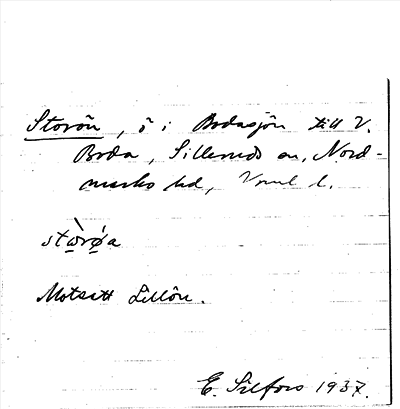 Storön, ö i Bodasjön till V.
Boda, Silleruds sn, Nord-
marks hd, Vrml l.
stὼrǿa
Motsatt Lillön.
E. Silfors 1937.